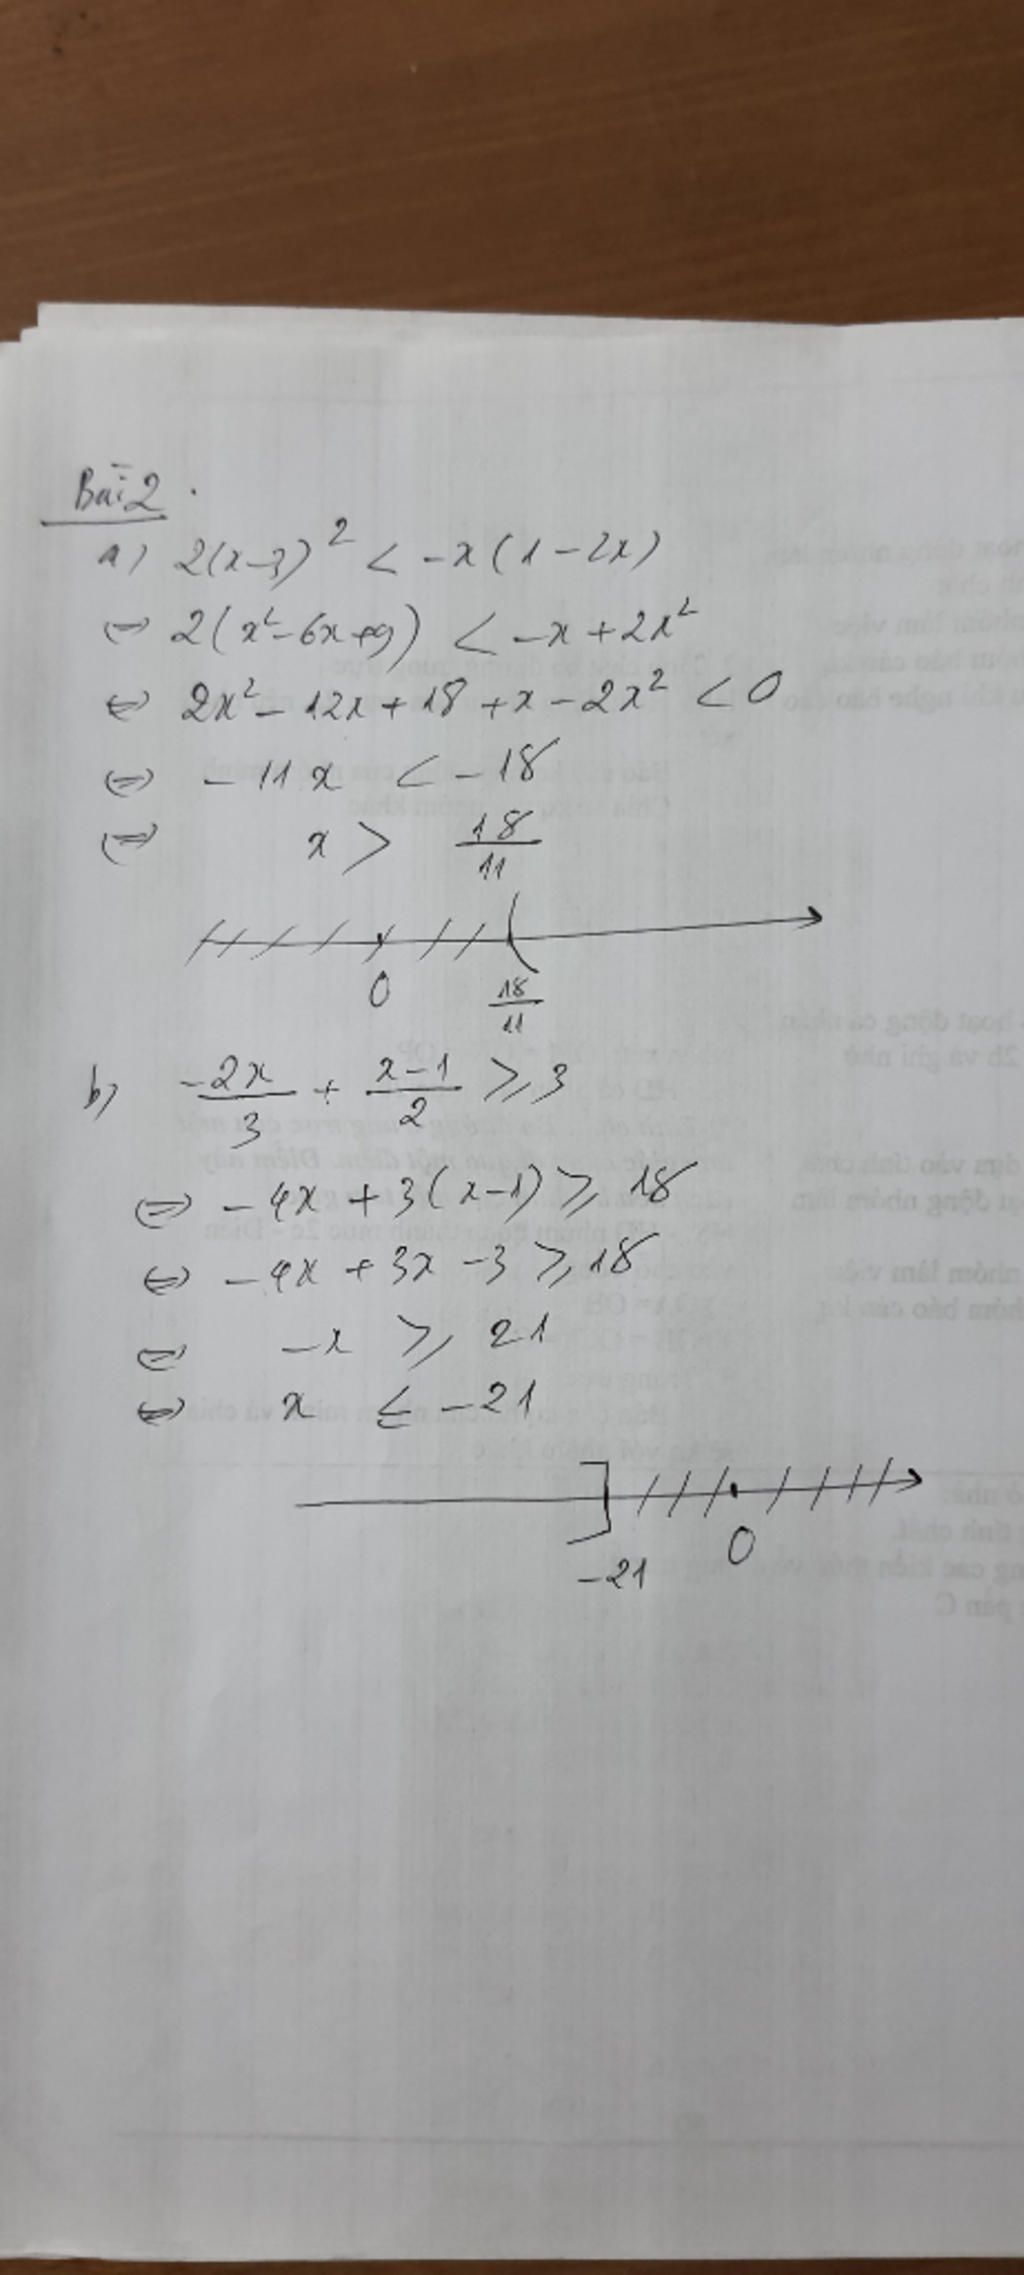 Bài 2.
a) 2(x-3)² < -x(1-2x)
⇔ 2(x²-6x+9) < -x+2x²
⇔ 2x²-12x+18+x-2x² < 0
⇔ -11x < -18
⇔ x > 18/11
0 18/11
b) -2x/3 + x-1/2 ≥ 3
⇔ -4x+3(x-1) ≥ 18
⇔ -4x+3x-3 ≥ 18
⇔ -x ≥ 21
⇔ x ≤ -21
-21 0